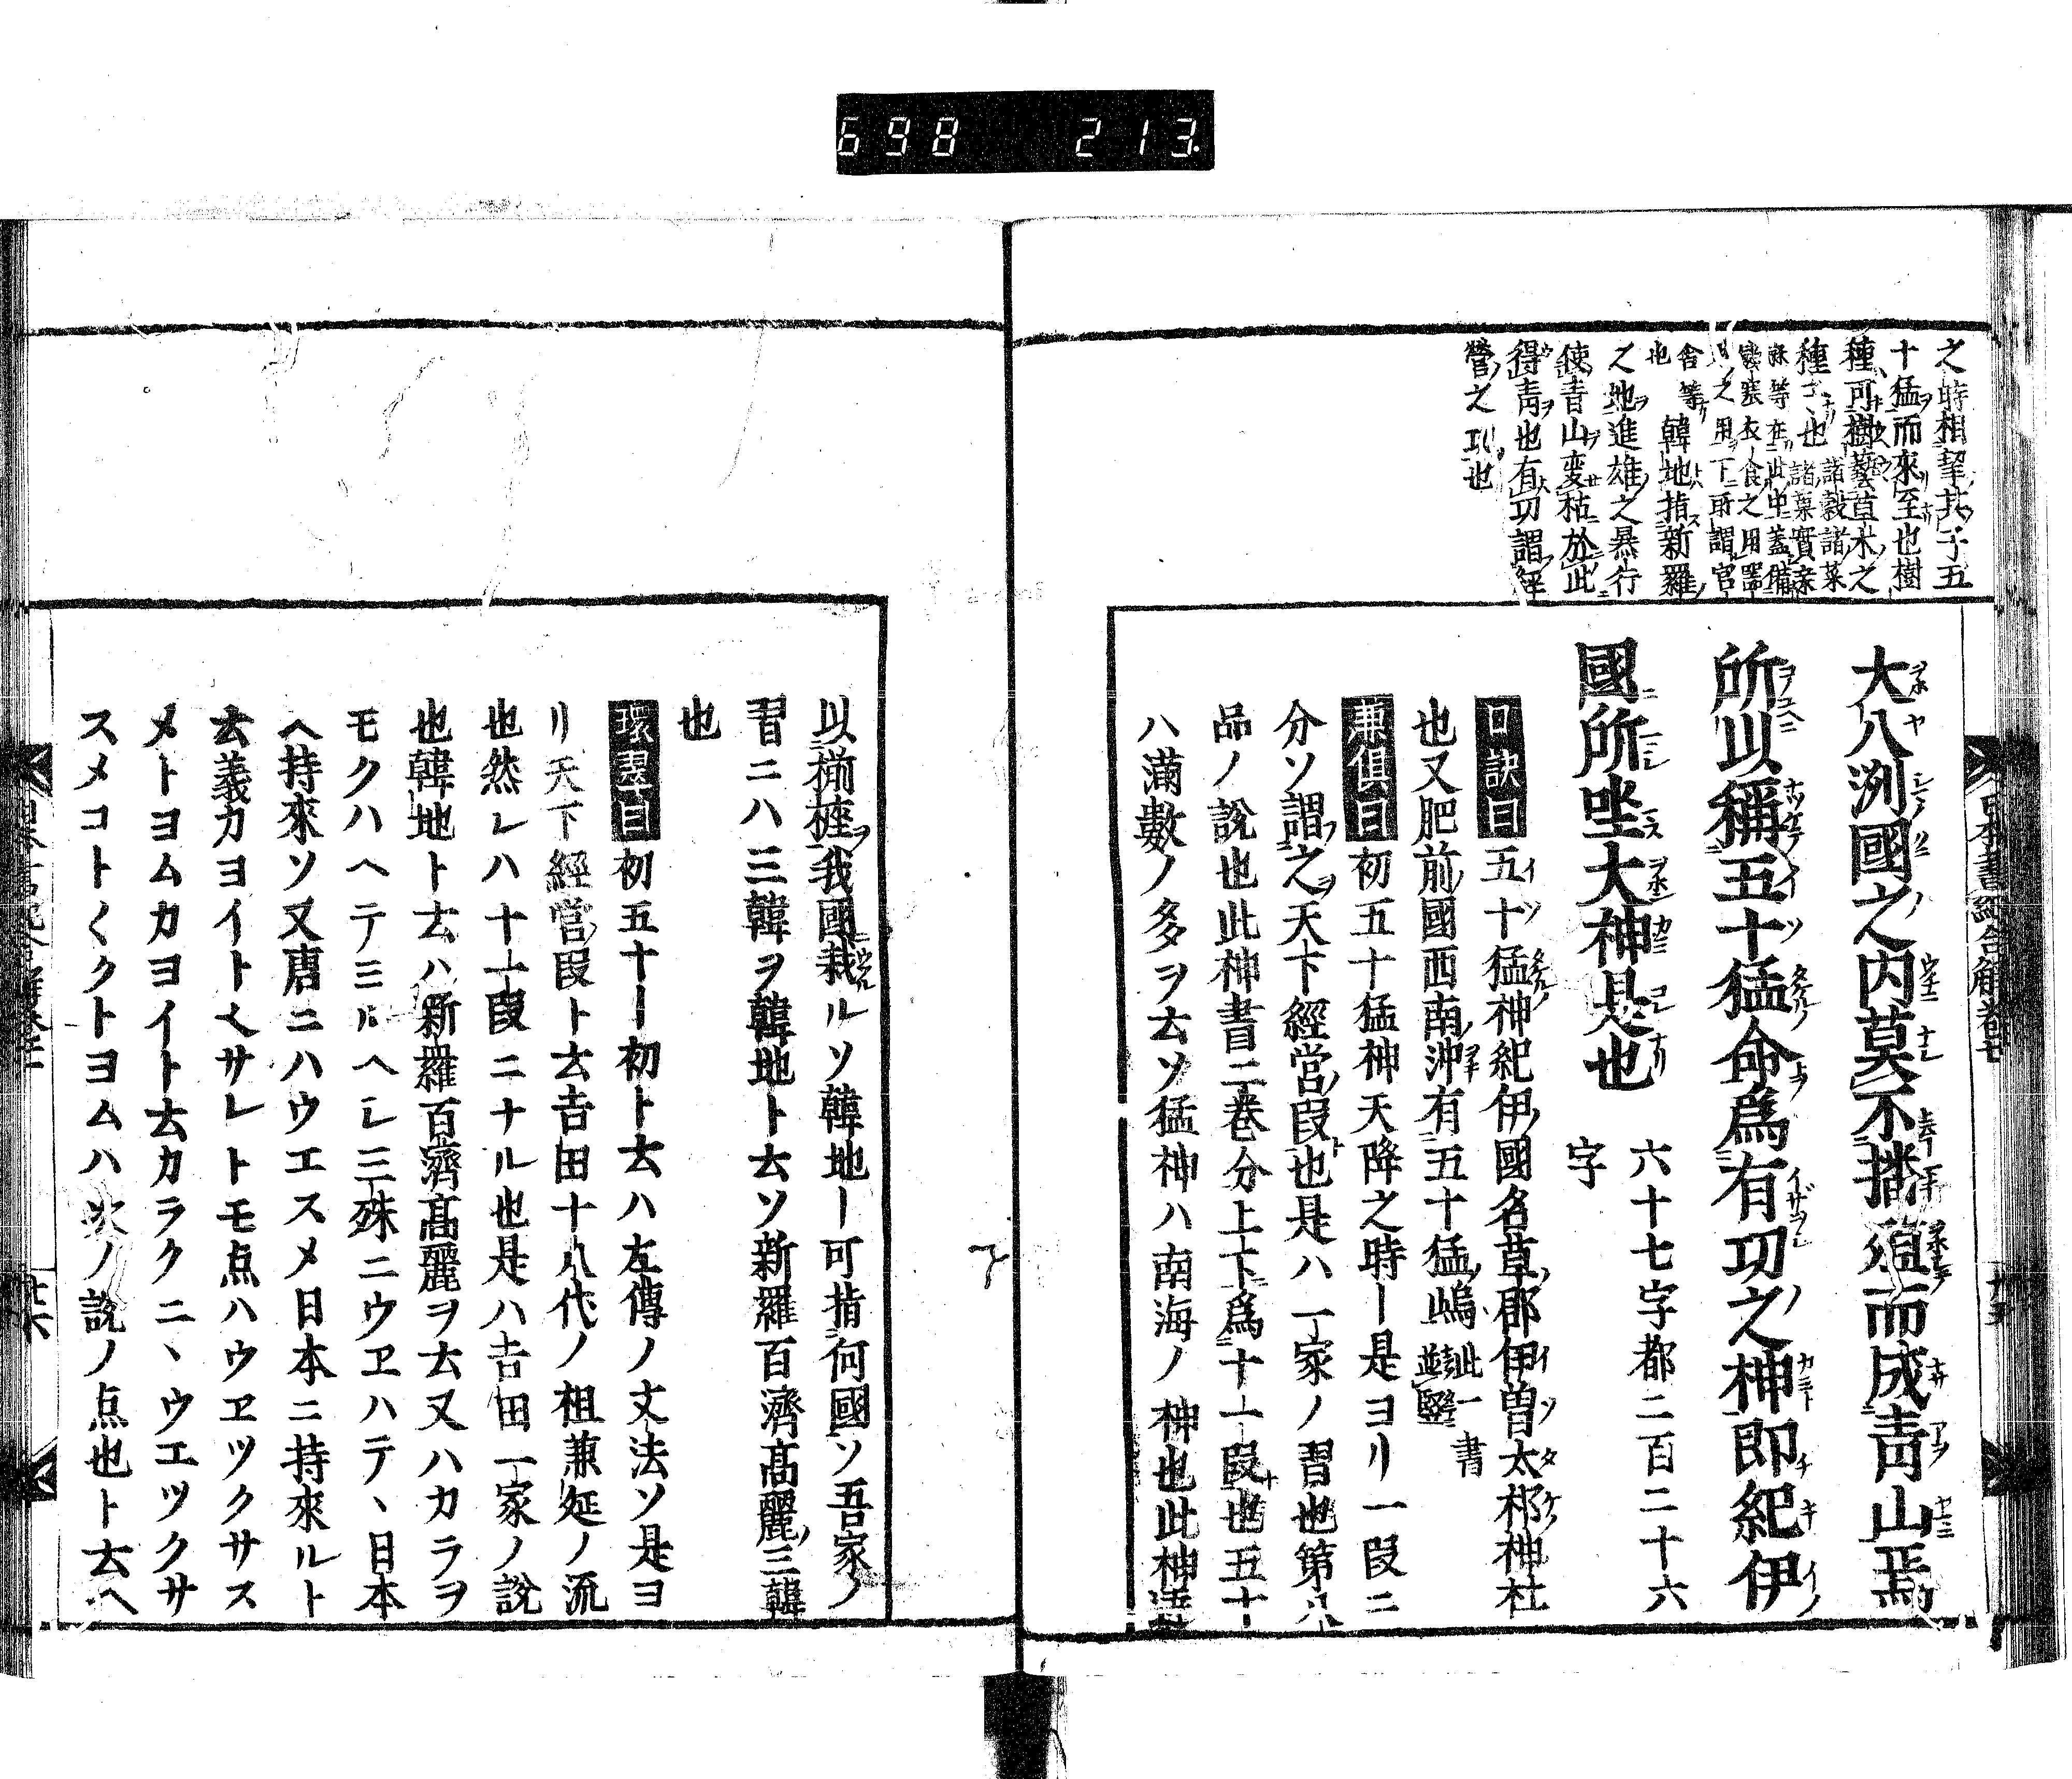 698 213
之時相挈其子五
十猛而來至也樹
種可樹藝草木之
種子也諸穀諸菜
諸菓實桑
麻等在此中蓋備
衣食之用
之用下所謂宮
舍等
也 韓地指新羅
之地進雄之暴行
使青山変枯於此
得靑也有功謂經
營之功也
大八洲國之内莫不播殖而成靑山焉
所以稱五十猛命爲有功之神即紀伊
國所坐大神是也
六十七字都二百二十六
字
口訣曰五十猛神紀伊國名草郡伊曽太祁神社
也又肥前國西南沖有五十猛嶋此一書
兼倶曰初五十猛神天降之時ー是ヨリ一段ニ
分ソ謂之天下經営段也是ハ一家ノ習也第八
品ノ說也此神書二巻分上下爲十一段也五十ー
ハ滿數ノ多ヲ云ソ猛神ハ南海ノ神也此神
以檝櫂我國栽ルソ韓地ー可指何國ソ吾家ノ
習ニハ三韓ヲ韓地ト云ソ新羅百濟高麗三韓
也
環翠曰初五十ー初ト云ハ左傳ノ文法ソ是ヨ
リ天下經営段ト云吉田十八代ノ祖兼延ノ流
也然レハ十一段ニナル也是ハ吉田一家ノ說
也韓地ト云ハ新羅百濟高麗ヲ云又ハカラヲ
モクハヘテミルヘシ三殊ニウヱハテヽ日本
ヘ持來ソ又唐ニハウエスメ日本ニ持來ルト
云義カヨイト〱サレトモ点ハウヱツクサス
メトヨムカヨイト云カラクニヽウエツクサ
スメコト〱クトヨムハ次ノ說ノ点也ト云ヘ
日本書紀合解卷七
十五
十六